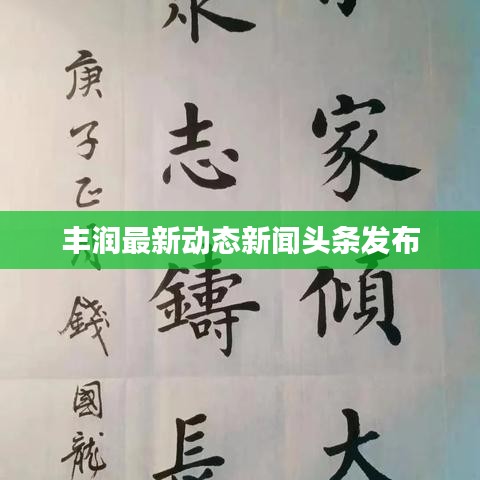 丰润最新动态新闻头条发布
家傾大
志鑄長
庚子正月錢國龍